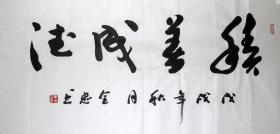 積善成德
戊戌年秋月金忠